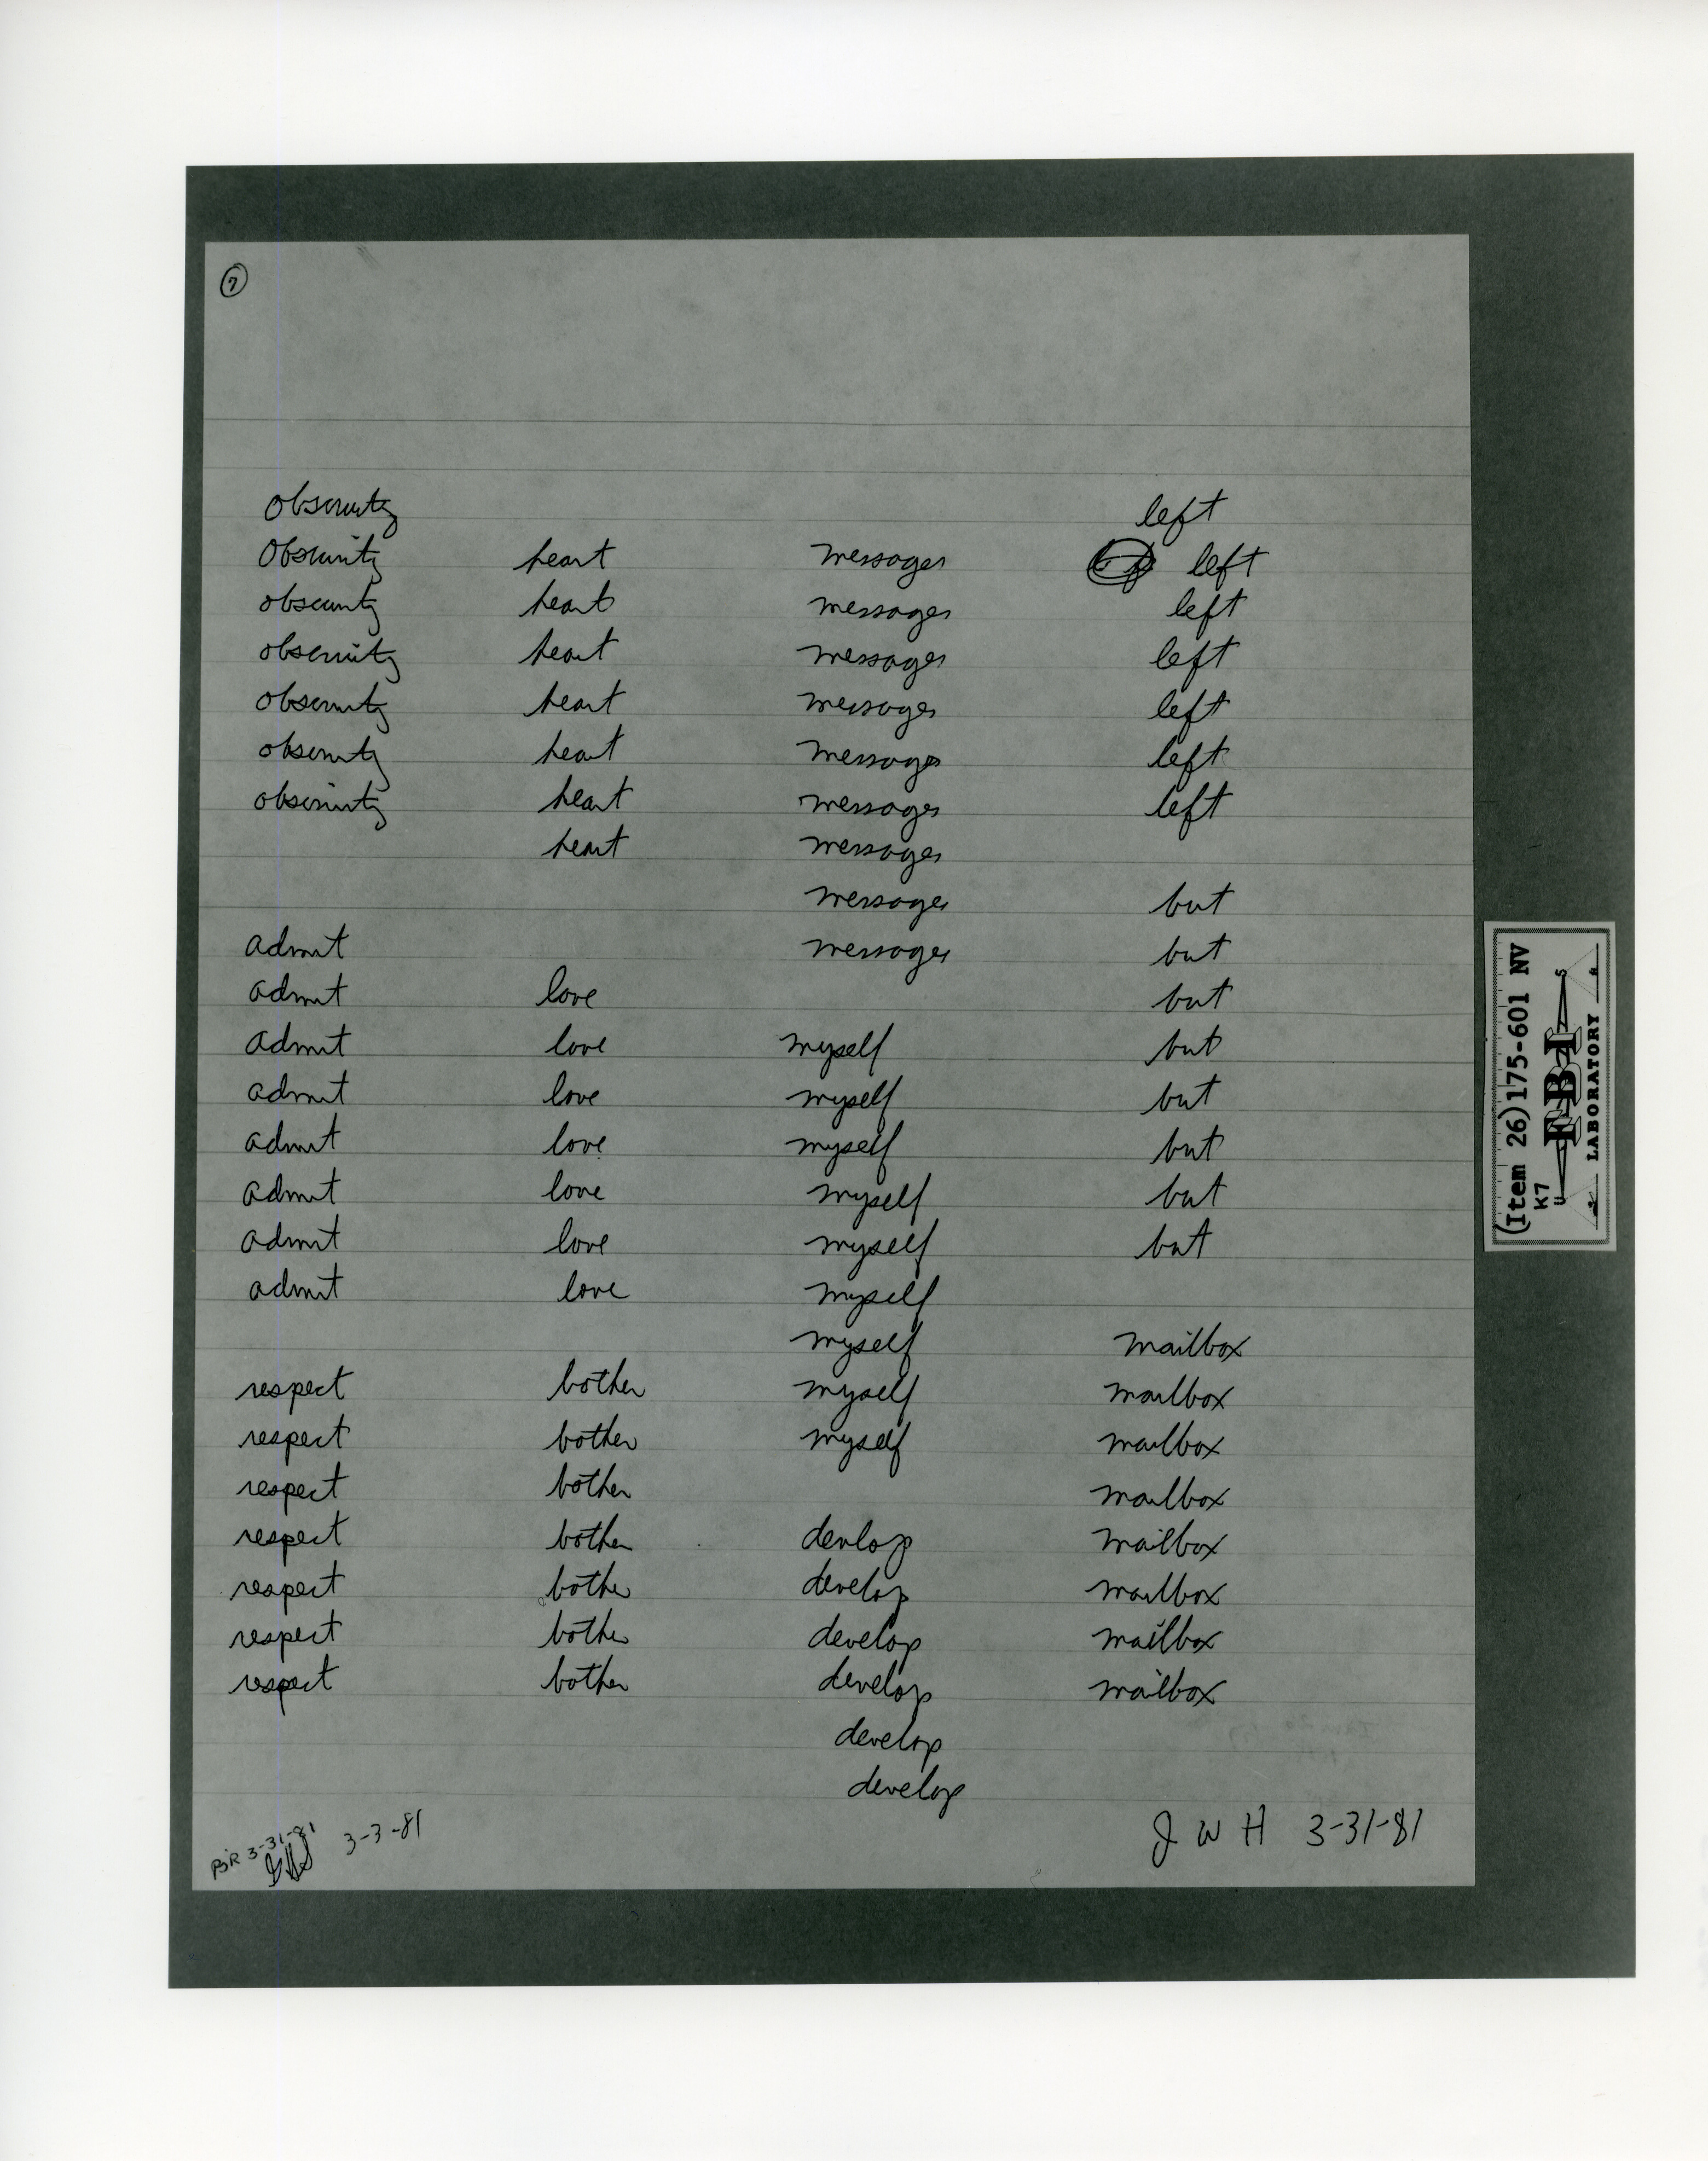 7
obscurity left
Obscurity heart messages left
obscurity heart messages left
obscurity heart messages left
obscurity heart messages left
obscurity heart messages left
obscurity heart messages left
heart messages
messages but
admit messages but
admit love but
admit love myself but
admit love myself but
admit love myself but
admit love myself but
admit love myself but
admit love myself
myself mailbox
respect bother myself mailbox
respect bother myself mailbox
respect bother mailbox
respect bother devlop mailbox
respect bother develop mailbox
respect bother develop mailbox
respect bother develop mailbox
develop
develop
BJR 3-31-81 3-3-81 JWH 3-31-81
(Item 26)175-601 NV
K7
FBI
LABORATORY